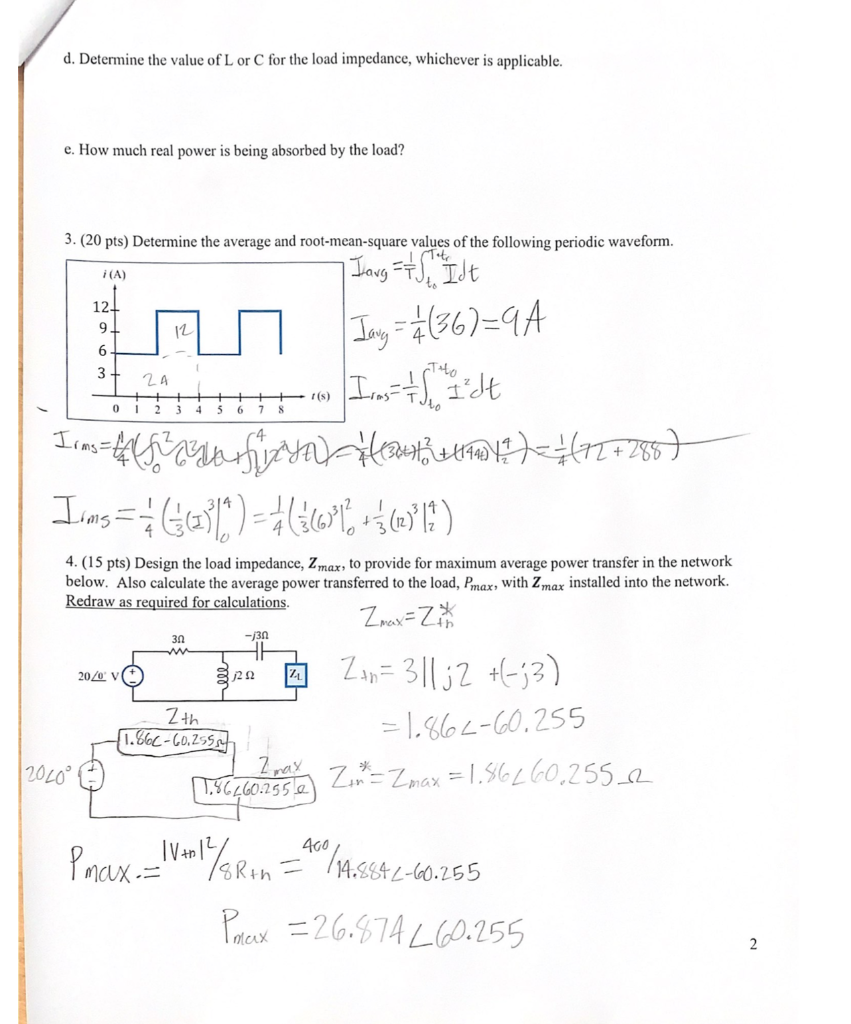 d. Determine the value of L or C for the load impedance, whichever is applicable.
e. How much real power is being absorbed by the load?
3. (20 pts) Determine the average and root-mean-square values of the following periodic waveform.
i (A)
12
9
6
3
12
2A
0 1 2 3 4 5 6 7 8
t (s)
Iavg = 1/T ∫t₀^T+t₀ I dt
Iavg = 1/4 (36) = 9A
Irms = 1/T ∫t₀^T+t₀ I² dt
Irms = 1/4 (∫₀² 6² dt + ∫₂⁴ 12² dt) = 1/4 (36t|₀² + (144t)|₂⁴) = 1/4 (72 + 288)
Irms = 1/4 (1/3 (I)³|₀⁴) = 1/4 (1/3 (6)³|₀² + 1/3 (12)³|₂⁴)
4. (15 pts) Design the load impedance, Zmax, to provide for maximum average power transfer in the network
below. Also calculate the average power transferred to the load, Pmax, with Zmax installed into the network.
Redraw as required for calculations.
Zmax = Zth*
3Ω
-j3Ω
20∠0° V
j2 Ω
ZL
Zth = 3||j2 + (-j3)
= 1.86∠-60.255
Zth
1.86∠-60.255Ω
20∠0°
Zmax
1.86∠60.255Ω
Zth* = Zmax = 1.86∠60.255 Ω
Pmax = |Vth|²/8Rth = 400/14.884∠-60.255
Pmax = 26.874∠60.255
2